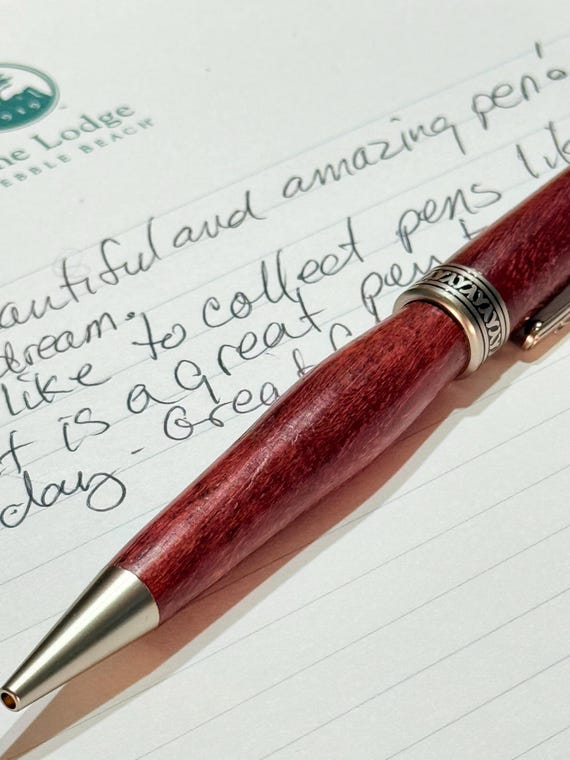 ne Lodge
EBBLE BEACH
autiful and amazing pen's
tream. to collect pens lik
like
t is a great pen t
day. Great f